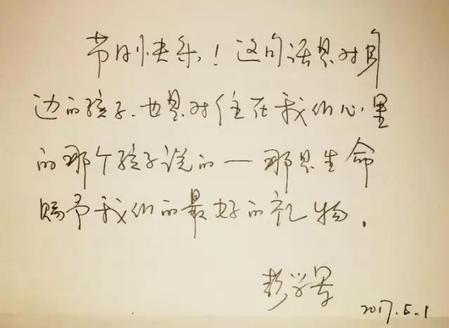 节日快乐！这句话是对身
边的孩子、也是对住在我们心里
的那个孩子说的——那是生命
赐予我们的最好的礼物。
彭学军
2017.6.1